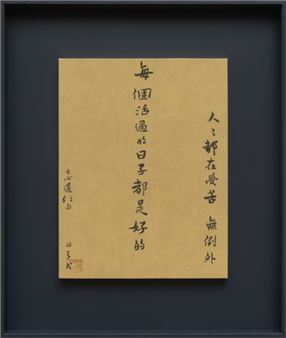 人人都在受苦 無例外
每個活過的日子都是好的